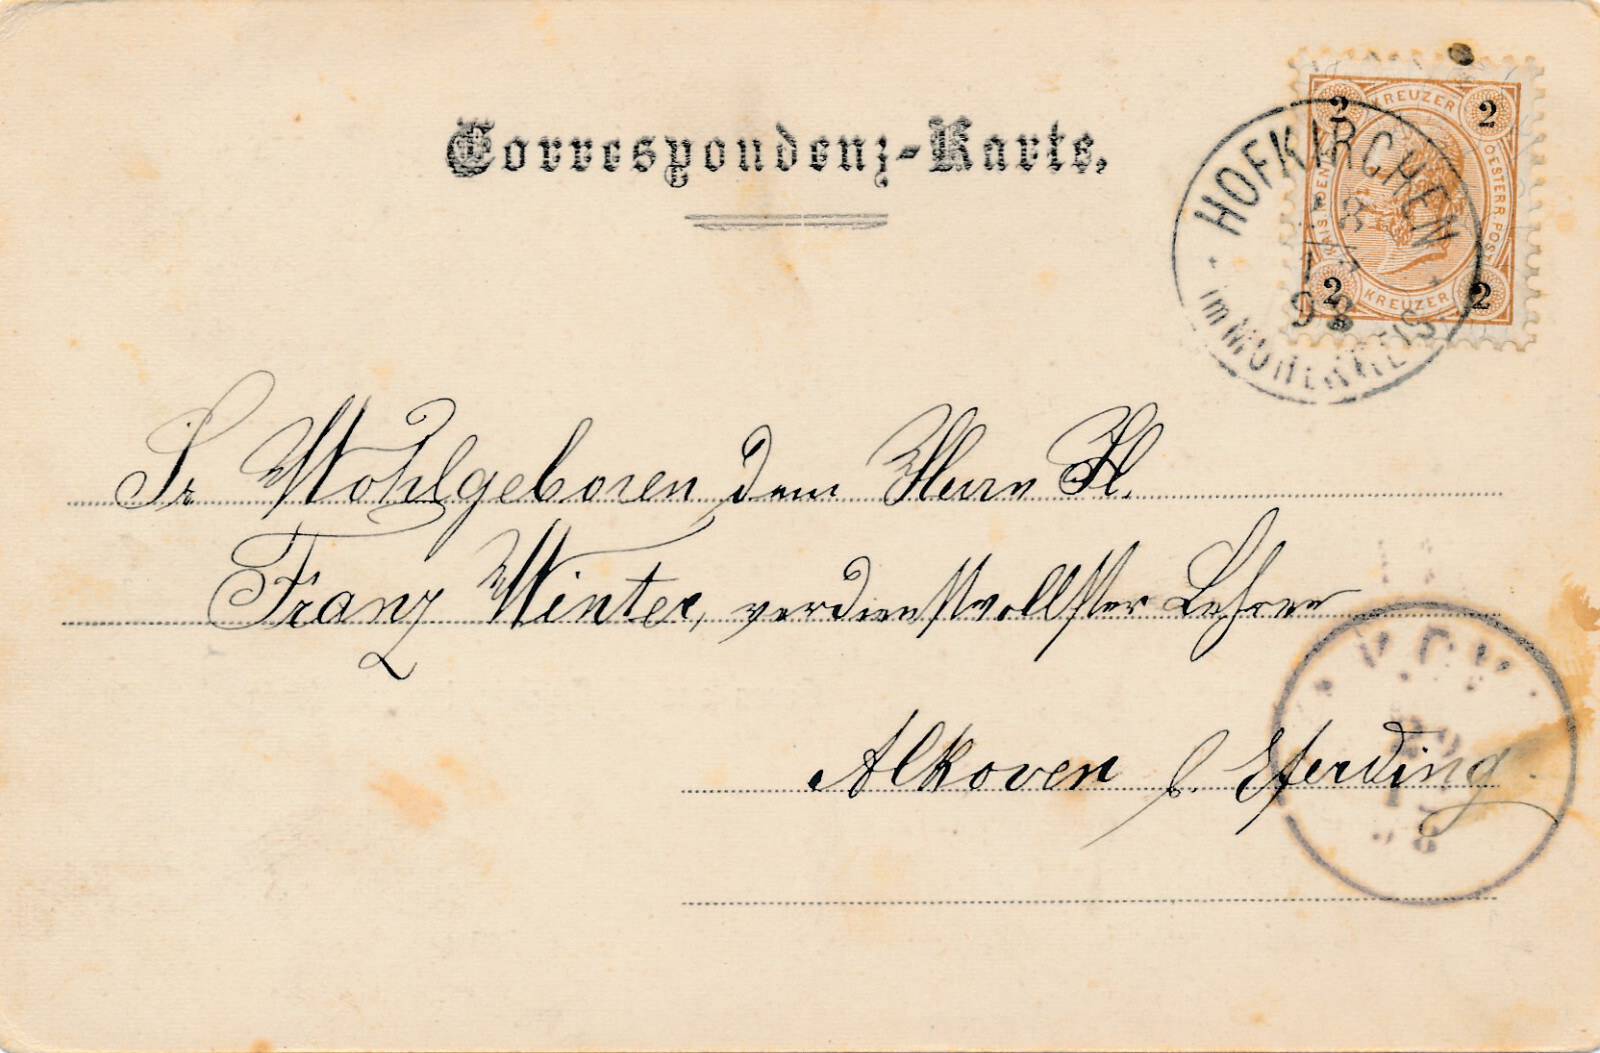 Correspondenz-Karte.
2 KREUZER 2
KAIS. KOEN. OESTERR. POST
2 KREUZER 2
HOFKIRCHEN
98
im MÜHLKREIS
Sr Wohlgeboren dem Herrn H.
Franz Winter, verdienstvollster Lehrer
Alkoven b. Eferding.